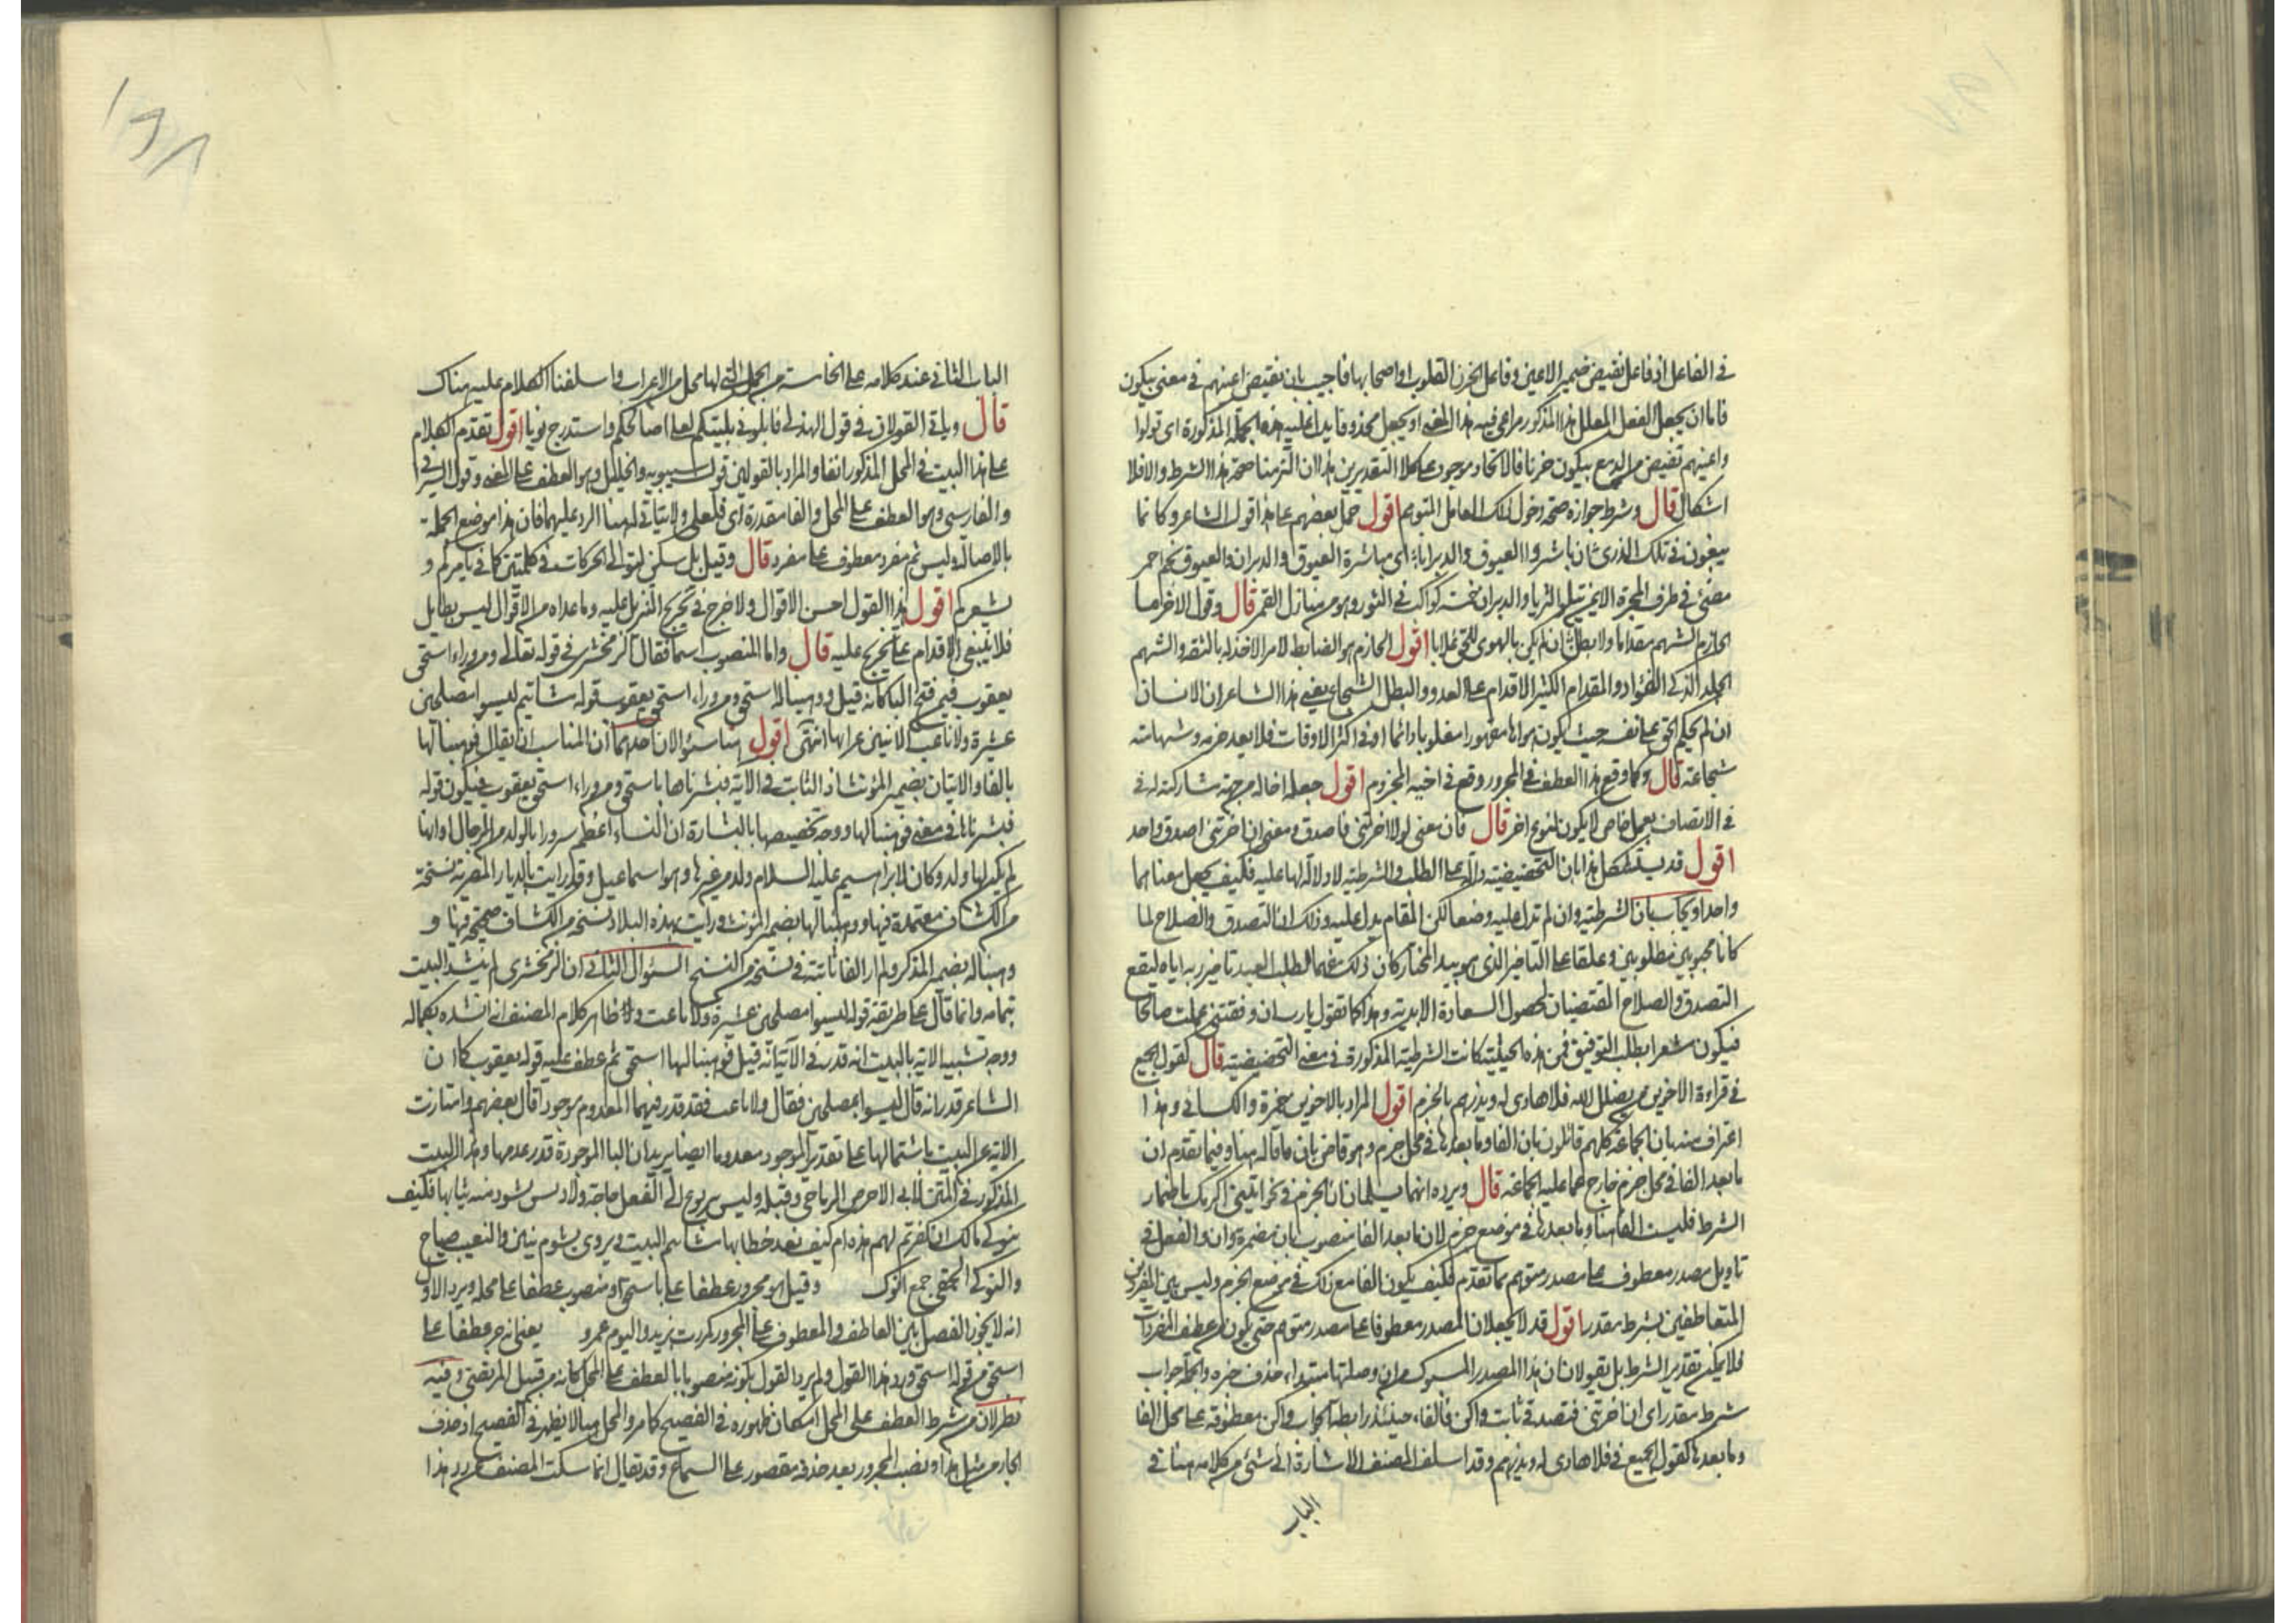 في الفاعل اذ فاعل تفيض ضمير الاعين وفاعل الحزن القلوب او اصحابها فاجيب بان تفيض اعينهم في معنى يبكون
فاما ان يجعل الفعل المعلل هذا المذكور مراعى فيه هذا المعنى او يجعل محذوفا يدل عليه هذه الجملة المذكورة اى تولوا
واعينهم تفيض من الدمع يبكون حزنا فالاتحاد موجود على كلا التقديرين هذا ان التزمنا صحة هذا الشرط والا فلا
اشكال قال وشرط جوازه صحة دخول ذلك العامل المتوهم اقول حمل بعضهم على هذا قول الشاعر وكانما
يبغون في تلك الذرى شان باشروا العيوق والدبرانا اى مباشرة العيوق والدبران والعيوق نجم احمر
مضئ في طرف المجرة الايمن يتلو الثريا والدبران خمسة كواكب في الثور وهو من منازل القمر قال وقول الاخر اما
الحازم الشهم مقداما ولا بطل ان لم يكن بالهوى للحق غلابا اقول الحازم هو الضابط لامر الاخذ له بالثقة والشهم
الجلد الذكى الفؤاد والمقدام الكثير الاقدام على العدو والبطل الشجاع يعنى هذا الشاعر ان الانسان
ان لم يحكم الحق على نفسه حيث يكون هواها مقهورا مغلوبا دائما او في اكثر الاوقات فلا يعد حزمه وشهامته
شجاعته قال وكما وقع هذا العطف في المجرور وقع في اخيه المجزوم اقول جعله اخا له من جهة مشاركته له في
في الاتصاف بعمل خاص لا يكون لنوع اخر قال فان معنى لولا اخرتنى فاصدق ومعنى ان اخرتنى اصدق واحد
اقول قد يستشكل هذا بان التحضيضية دالة على الطلب والشرطية لا دلالة لها عليه فكيف يجعل معناهما
واحدا ويجاب بان الشرطية وان لم تدل عليه وضعا لكن المقام يدل عليه وذلك ان التصدق والصلاح لما
كانا محبوبين مطلوبين وعلقا على التاخير الذى هو بيد المختار كان ذلك مفهما لطلب العبد تاخير ربه اياه ليقع
التصدق والصلاح المقتضيان لحصول السعادة الابدية وهذا كما تقول يا رب ان وفقتنى عملت صالحا
فيكون مشعرا بطلب التوفيق فمن هذه الحيثية كانت الشرطية المذكورة في معنى التحضيضية قال كقول الجميع
في قراءة الاخوين من يضلل الله فلا هادى له ويذرهم بالجزم اقول المراد بالاخوين حمزة والكسائى وهذا
اعتراف منه بان الجماعة كلهم قائلون بان الفا وما بعدها في محل جزم وهو قاض بان ما قاله هنا وفيما تقدم ان
ما بعد الفا في محل جزم خارج عما عليه الجماعة قال ويرده انهما يسلمان ان الجزم في نحو ايتنى اكرمك باضمار
الشرط فليست الفا هنا وما بعدها في موضع جزم لان ما بعد الفا منصوب بان مضمرة وان والفعل في
تاويل مصدر معطوف على مصدر متوهم مما تقدم فكيف يكون الفا مع ذلك في موضع الجزم وليس بين المفردين
المتعاطفين شرط مقدر اقول قد لا يجعلان المصدر معطوفا على مصدر متوهم حتى يكون من عطف المفردات
فلا يمكن تقدير الشرط بل يقولان ان هذا المصدر المسبوك من ان وصلتها مبتدا حذف خبره والجملة جواب
شرط مقدر اى ان اخرتنى فتصدقى ثابت واكن فالفاء حينئذ رابطة للجواب واكن معطوفة على محل الفا
وما بعدها كقول الجميع في فلا هادى له ويذرهم وقد اسلف المصنف الاشارة الى شئ من كلامه هنا في
الباب
١٩٨
الباب الثانى عند كلامه على الخامسة من الجمل التى لها محل من الاعراب واسلفنا الكلام عليه هناك
قال ويأتى القولان في قول الهذلى فابلونى بليتكم لعلى اصالحكم واستدرج نويا اقول تقدم الكلام
على هذا البيت في المحل المذكور انفا والمراد بالقولين قول سيبويه والخليل وهو العطف على المعنى وقول السيرافى
والفارسى وهو العطف على المحل والفا مقدرة اى فلعلى ولا يتاتى لهما هنا الرد عليهما فان هذا موضع الجملة
بالاصالة وليس ثم مفرد معطوف على مفرد قال وقيل بل سكن لتوالى الحركات في كلمتين كما في يامركم و
يشعركم اقول هذا القول احسن الاقوال ولا حرج في تخريج التنزيل عليه وما عداه من الاقوال ليس بطايل
فلا ينبغى الاقدام على تخريج عليه قال واما المنصوب اسما فقال الزمخشرى في قوله تعالى ومن وراء استحق
يعقوب فيمن فتح البا كانه قيل ووهبنا له اسحق ومن وراء اسحق يعقوب قوله مشائيم ليسوا مصلحين
عشيرة ولا ناعب الا ببين غرابها انتهى اقول هنا سئوالان احدهما ان المناسب ان يقال فوهبنا لها
بالفا والاتيان بضمير المؤنث اذ الثابت في الاية فبشرناها باسحق ومن وراء اسحق يعقوب فيكون قوله
فبشرناها في معنى فوهبنا لها ووجه تخصيصها بالبشارة ان النساء اعظم سرورا بالولد من الرجال او انها
لم يكن لها ولد وكان لابراهيم عليه السلام ولد من غيرها وهو اسماعيل وقد رايت بالديار المصرية نسخة
من الكشاف معتمدة فيها ووهبنا لها بضمير المؤنث ورايت بهذه البلاد نسخة من الكشاف صحيحة فيها و
وهبنا له بضمير المذكر ولم ار الفا ثابتة في نسخة من النسخ السئوال الثانى ان الزمخشرى لم ينشد البيت
بتمامه وانما قال على طريقة قوله ليسوا مصلحين عشيرة ولا ناعب وظاهر كلام المصنف انه انشده بكماله
ووجه تشبيه الاية بالبيت انه قدر في الاية انه قيل فوهبنا لها اسحق ثم عطف عليه قوله يعقوب كما ان
الشاعر قدر انه قال ليسوا بمصلحين فقال ولا ناعب فقد قدر فيهما المعدوم موجودا قال بعضهم وامتازت
الاية عن البيت باشتمالها على تقدير الموجود معدوما ايضا يريد ان البا الموجودة قدر عدمها وهذا البيت
المذكور في المتن لابى الاحوص الرياحى وقبله وليس بيربوع الى الفعل حاجة ولا دنس يسود منه ثيابها فكيف
بنوكى مالك ان كفرتم لهم هذه ام كيف بعد خطابها مشائيم البيت ويروى بشوم ببين والنعيب صياح
والنوكى الحمقى جمع انوك وقيل هو مجرور عطفا على باسحق او منصوب عطفا على محله ويرد الاول
انه لا يجوز الفصل بين العاطف والمعطوف على المجرور كمررت بزيد واليوم عمرو يعنى انه جر عطفا على
اسحق من قوله اسحق ورد هذا القول ولم يرد القول بكونه منصوبا بالعطف على المحل كانه من قبيل المرتضى وفيه
نظر لان من شرط العطف على المحل امكان ظهوره في الفصيح كما مر والمحل هنا لا يظهر في الفصيح اذ حذف
الجار من مثل هذا ونصب المجرور بعد حذفه مقصور على السماع وقد يقال انما سكت المصنف عن رد هذا